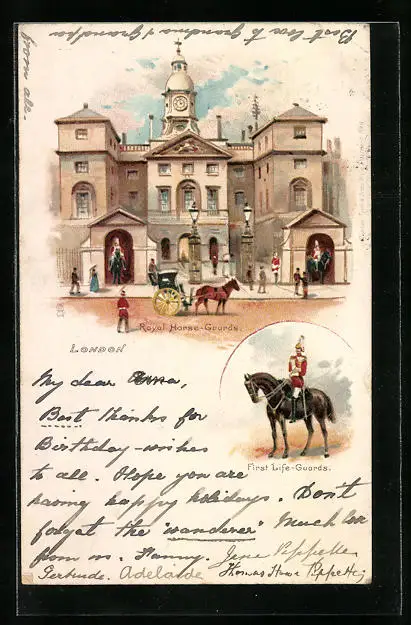 Best love to grandma & Grandpa
from all.
Royal Horse-Guards.
LONDON
First Life-Guards.
My dear
Best thanks for
Birthday-wishes
to all. Hope you are
having happy holidays. Don't
forget the "wanderer" Much love
from us. Fanny. Jane
Gertrude. Adelaide Thomas